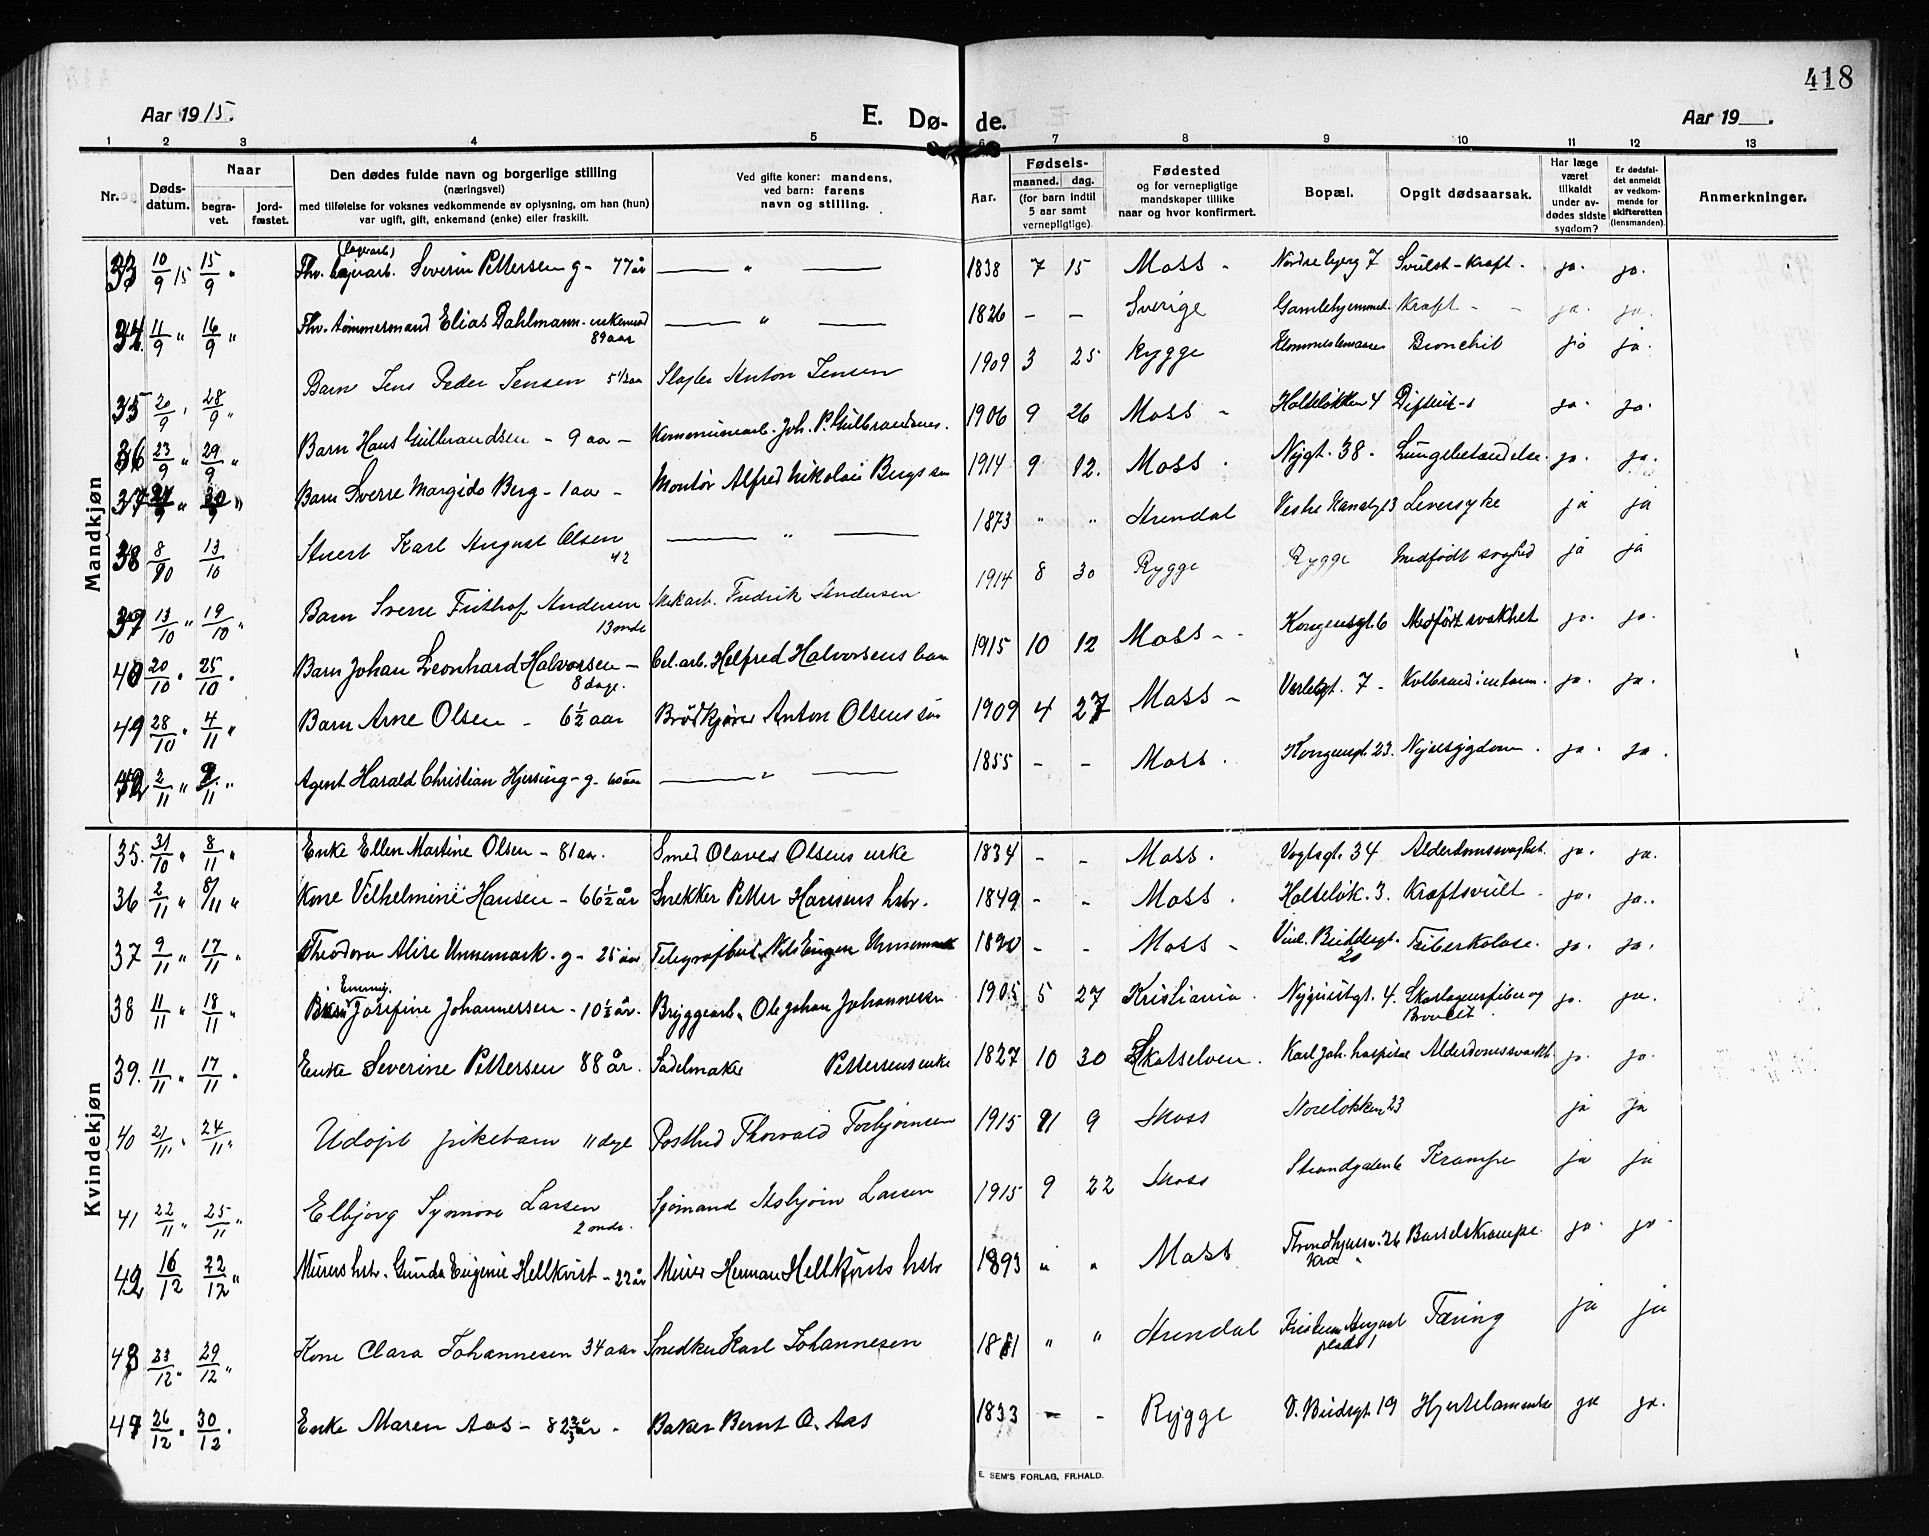 418
Aar 1915. E. Dø- de. Aar 19 .
1 2 3 4 5 6 7 8 9 10 11 12 13
Nr. Døds-datum. Naar begra-vet. jord-fæstet. Den dødes fulde navn og borgerlige stilling (næringsvei) med tilføielse for voksnes vedkommende av oplysning, om han (hun) var ugift, gift, enkemand (enke) eller fraskilt. Ved gifte koner: mandens, ved barn: farens navn og stilling. Aar. Fødsels- maaned. dag. (for barn indtil 5 aar samt vernepligtige). Fødested og for vernepligtige mandskaper tillike naar og hvor konfirmert. Bopæl. Opgit dødsaarsak. Har læge været tilkaldt under av-dødes sidste sygdom? Er dødsfal-det anmeldt av vedkom-mende for skifteretten (lensmanden). Anmerkninger.
Mandkjøn
33 10/9 15 15/9 " Fhv. Severin Pettersen g- 77 år — " — 1838 7 15 Moss - Nordre bjerg 7 Svulst - Kræft - ja. ja.
34. 11/9 " 16/9 " Fhv. tømmermand Elias Dahlmann - enkemand 89 aar — " — 1826 - - Sverige Gamlehjemmet. Kræft - - ja. ja.
35 20/9 " 28/9 " Barn Jens Peder Jensen Slagter Anton Jensen 1909 3 25 Rygge Bronchit ja ja.
36 23/9 " 29/9 " Barn Hans Gulbrandsen - 9 aa - Kommunearb. Joh. P. Gulbrandsens. 1906 9 26 Moss - Holteløkken 4 ja. ja.
37 " 30/9 " Barn Sverre Margido Berg - 1 aar - Montør Alfred Nikolai Bergs søn 1914 9 12. Moss . Nygt. 38 - Lungebetændelse. ja. ja.
38 13/10 Stuert Karl August Olsen 42 — " — 1873 " " Arendal Vestre Kanalgt 3 Leversyke ja ja
39 13/10 " 19/10 " Barn Sverre Frithof Andersen 13 mdr Mek arb. Fredrik Andersen 1914 8 30 Rygge Rygge Medfødt svaghed ja ja
40 20/10 " 25/10 . Barn Johan Leonhard Halvorsen - 8 dage. Cel. arb. Helfred Halvorsens barn 1915 10 12 Moss - - Kongensgt. 6 Medført svakhet ja. ja.
41 28/10 " 4/11 " Barn Arne Olsen - 6½ aar Brødkjører Anton Olsens søn 1909 4 27 Moss - Værlegt. 7 - Kolbrand i ja. ja.
42 2/11 " 9/11 " Agent Harald Christian Hjersing - g - 60 aar — " — 1855 - - Moss . Kongensgt. 23. Nyresygdom . ja. ja.
Kvindekjøn
35. 31/10 " 8/11 " Enke Ellen Martine Olsen - 81 aar. Smed Olaves Olsens enke 1834 - - Moss . Vogtsgt. 34 Alderdomssvaghet. ja. ja.
36 2/11 " 8/11 " Kone Vilhelmine Hansen - 66½ år Snekker Petter Hansens hstr. 1849 - - Moss . Holteløk. 3. Kræftsvulst - ja. ja.
37 9/11 " 17/11 " Theodora Alise Unnemark - g - 25 år Telegrafbud Nils Eugen Unnemark 1890 - - Moss - 20 Tuberkolose. ja. ja.
38 11/11 " 18/11 " Emmy. Josefine Johannessen - 10½ år. Bryggearb. Ole Johan Johannessen 1905 5 27 Kristiania. Nyquistgt. 4. Skarlagensfeber og Broncit. ja. ja.
39. 11/11 " 17/11 " Enke Severine Pettersen 88 år. Sadelmaker Pettersens enke 1827 10 30 Skotselven . Karl Joh. hospital Alderdomssvakh. ja. ja.
40 21/11 " 24/11 " Udøpt pikebarn 11 dage Postbud Thorvald Torbjørnsen 1915 11 9 Moss Noreløkken 23 ja ja
41 22/11 " 25/11 " Elbjørg Synnøve Larsen 2 mdr. Sjømand Asbjørn Larsen 1915 9 22 Moss Strandgaten 6 Krampe ja ja
42 16/12 22/12 " Murers hstr. Gunda Eugenie Hellkvist - 22 år Murer Herman Hellkvists hstr 1893 " " Moss Kra Barselskrampe. ja. ja.
43 23/12 " 29/12 " Kone Clara Johannesen 34 aar Snedker Karl Johannesen 1881 " " Arendal Kristian August plads 1 Tæring ja ja
44 26/12 . 30/12 . Enke Maren Aas - 82⅔ år - Baker Bernt O. Aas 1833 - - Rygge 19 ja ja.
E. SEM'S FORLAG, FR.HALD.